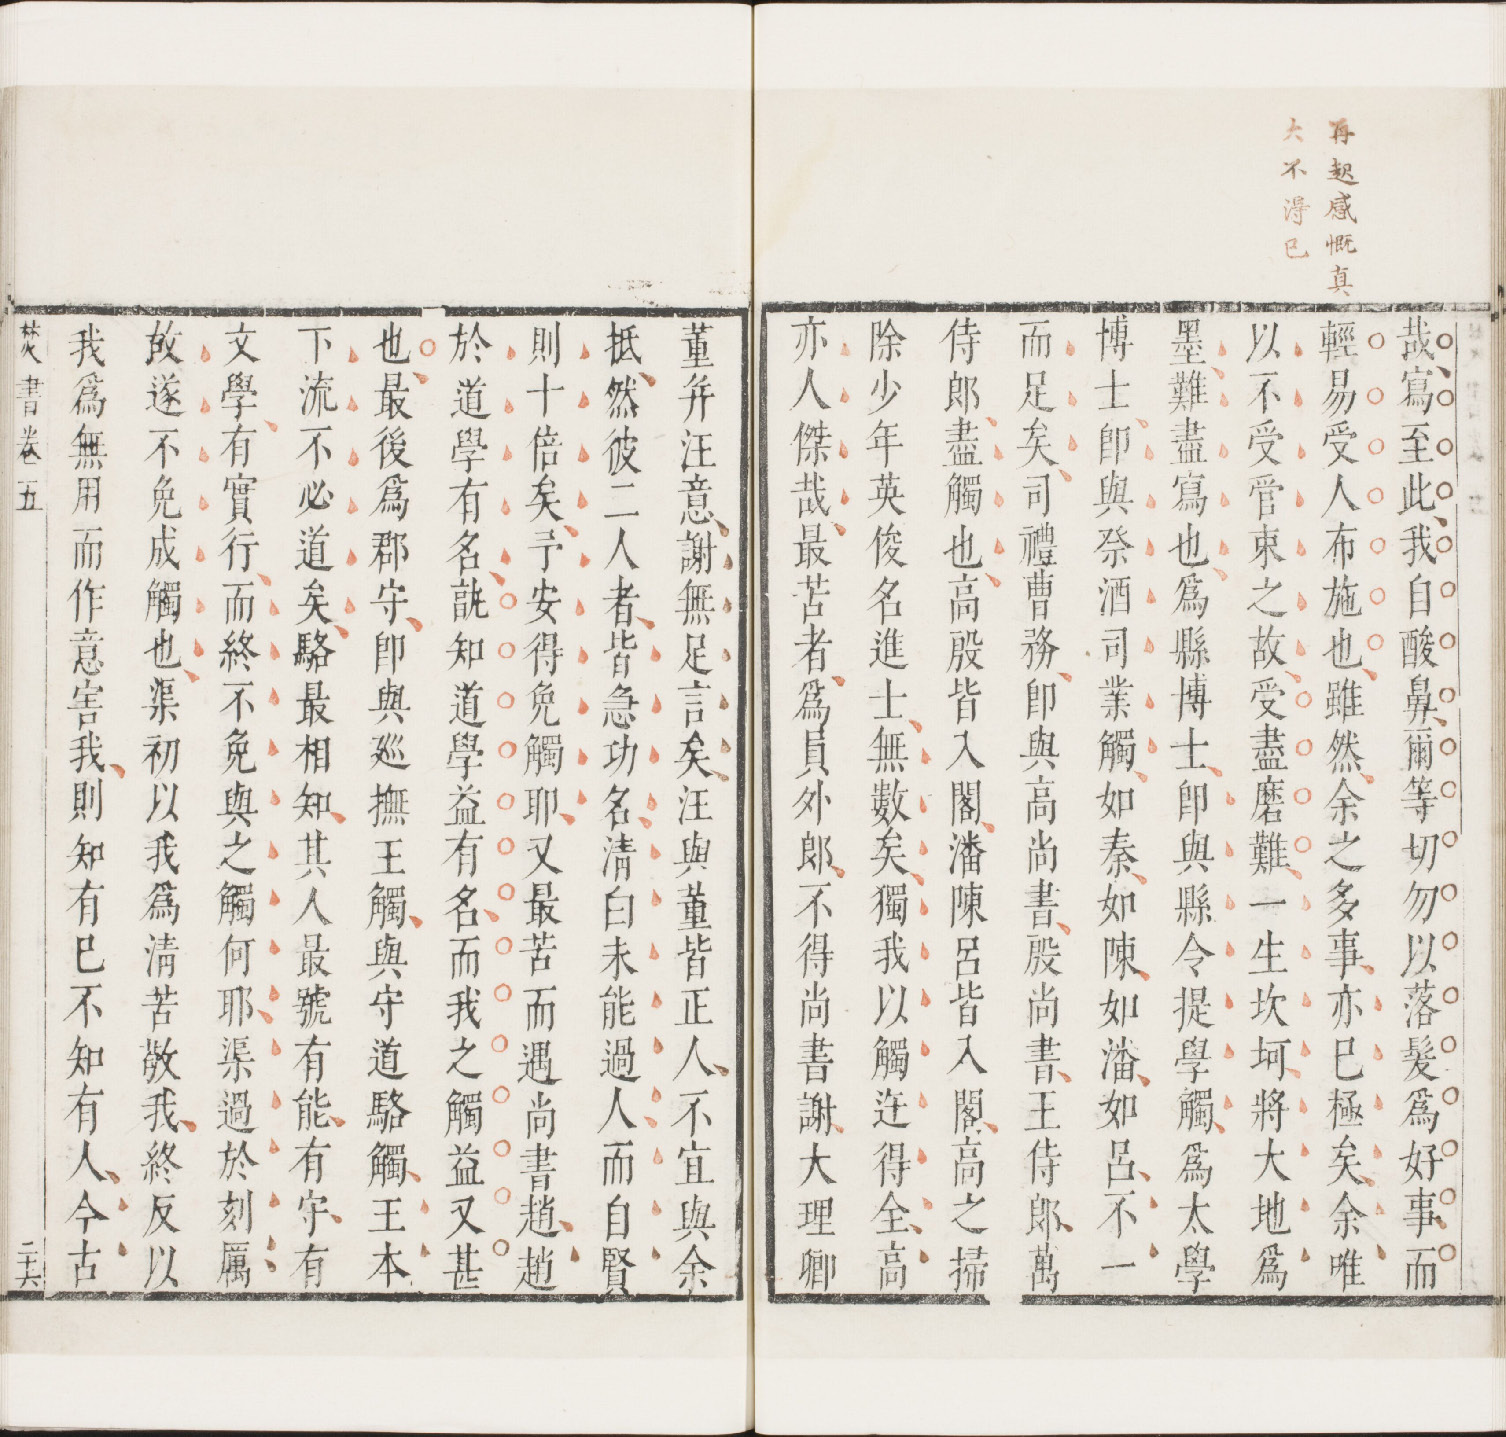 再起感慨真
大不得已
哉寫至此我自酸鼻爾等切勿以落髮爲好事而
輕易受人布施也雖然余之多事亦已極矣余唯
以不受管束之故受盡磨難一生坎坷將大地爲
墨難盡寫也爲縣博士卽與縣令提學觸爲太學
博士卽與祭酒司業觸如秦如陳如潘如呂不一
而足矣司禮曹務卽與高尚書殷尚書王侍郎萬
侍郎盡觸也高殷皆入閣潘陳呂皆入閣高之掃
除少年英俊名進士無數矣獨我以觸迕得全高
亦人傑哉最苦者爲員外郎不得尚書謝大理卿
董并汪意謝無足言矣汪與董皆正人不宜與余
抵然彼二人者皆急功名清白未能過人而自賢
則十倍矣予安得免觸耶又最苦而遇尚書趙趙
於道學有名誂知道學益有名而我之觸益又甚
也最後爲郡守卽與廵撫王觸與守道駱觸王本
下流不必道矣駱最相知其人最號有能有守有
文學有實行而終不免與之觸何耶渠過於刻厲
故遂不免成觸也渠初以我爲清苦敬我終反以
我爲無用而作意害我則知有已不知有人今古
焚書卷五
二十六